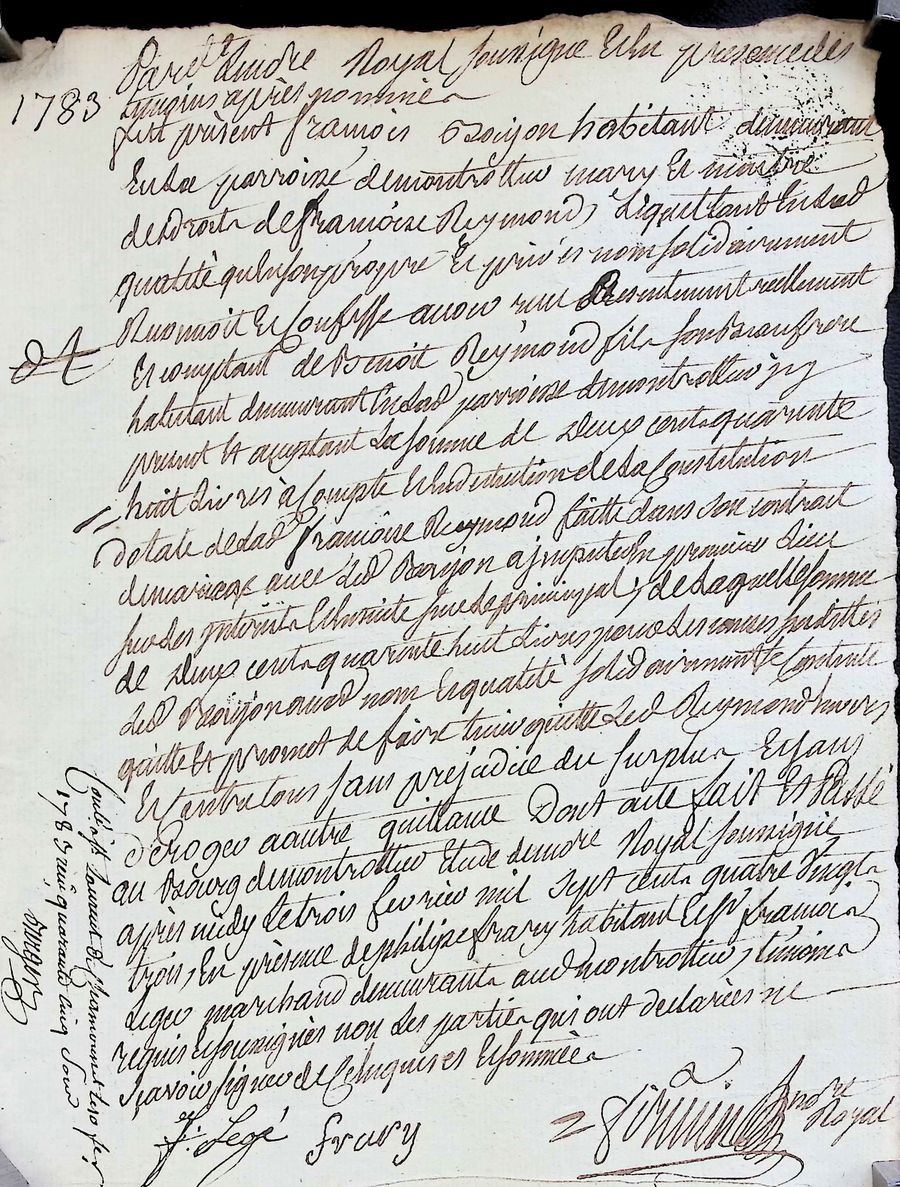 1783
Pard.t Nore Royal soussigné Et En presence des
temoins après nommés
fut présent françois Boujon habitant demeurant
En La parroisse demontrottier mary Et maitre
desdroits defrançoise Reymond, Lequel tant En Lad
qualité qu'En son propre Et privé nom solidairement
Reconnoit Et Confesse avoir reçu Presentement reellement
Et comptant de Benoit Reymond fils son Beaufrere
habitant demeurant En Lad parroisse demontrottier icy
present Et aceptant La somme de Deux cents quarente
huit Livres à Compte Et En deduction de La Constitution
dotale de Lad françoise Reymond faitte dans son contract
demariage avec Led Boujon a jmputer En premier Lieu
sur Les jnterets Et Ensuite sur Le principal, de Laquelle somme
de Deux cents quarente huit Livres pour Les causes susdittes
Led Boujon aud nom Et qualité solidairement se Contente
quitte Et promet de faire tenir quitte Led Reymond Envers
Et Contre tous sans préjudice du surplus Et sans
déroger a autre quittance Dont acte fait Et Passé
au Bourg demontrottier Etude de nore Royal soussigné
après midy Le trois fevrier mil sept cents quatre Vingts
trois, En présence de philipe frary habitant Et sr françois
Legé marchand demeurants aud montrottier, témoins
requis Et soussignés non Les parties qui ont declarées ne
sçavoir signer de Ce Enquises Et sommées
F: Legé frary
nore
Royal
Controllé à St Laurent de Chamousset Le 10 fer
1783 reçu quarante cinq sous